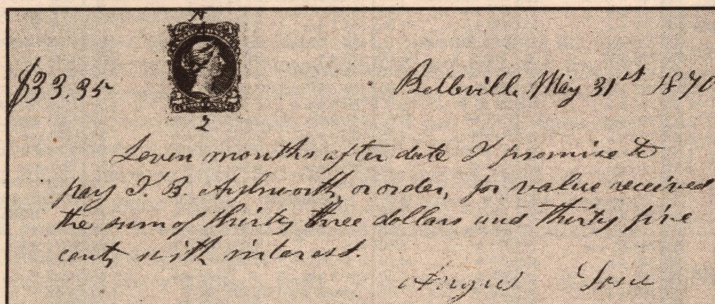 $33.35 Belleville May 31st 1870
Seven months after date I promise to
pay J. B. Aylsworth or order, for value received
the sum of thirty three dollars and thirty five
cents with interest.
Angus